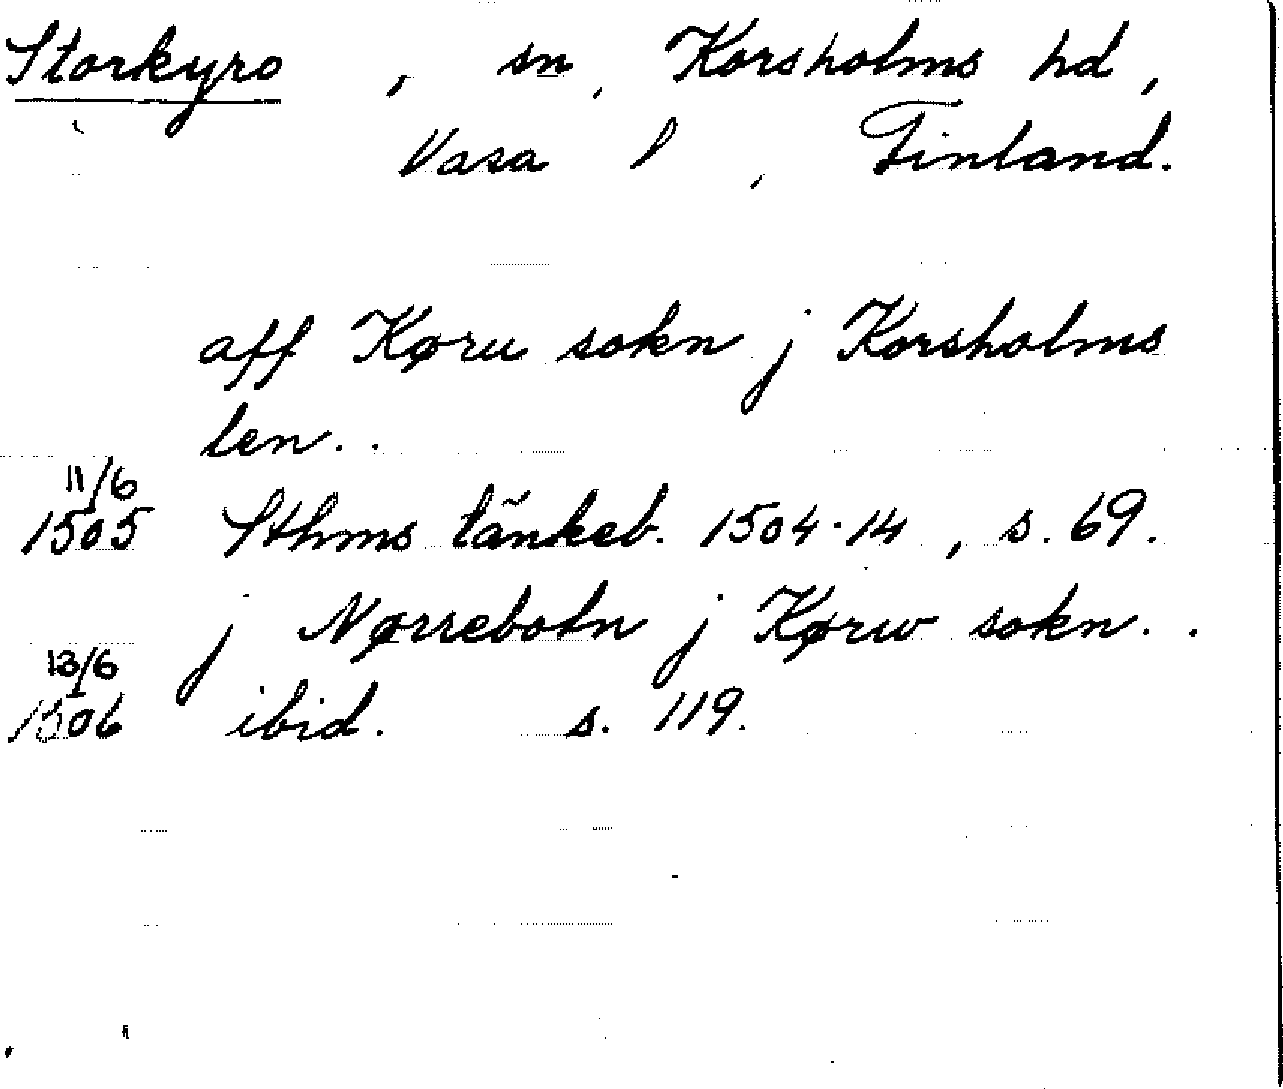 Storkyro , sn, Korsholms hd,
Vasa l , Finland.
aff Køru sokn j Korsholms
len..
11/6
1505 Sthms tänkeb. 1504-14 , s. 69.
j Nørrebotn j Kørw sokn..
13/6
1506 ibid. s. 119.